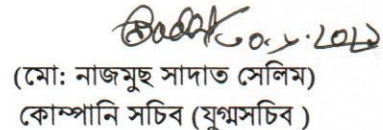 (মো: নাজমুছ সাদাত সেলিম)
কোম্পানি সচিব (যুগ্মসচিব )